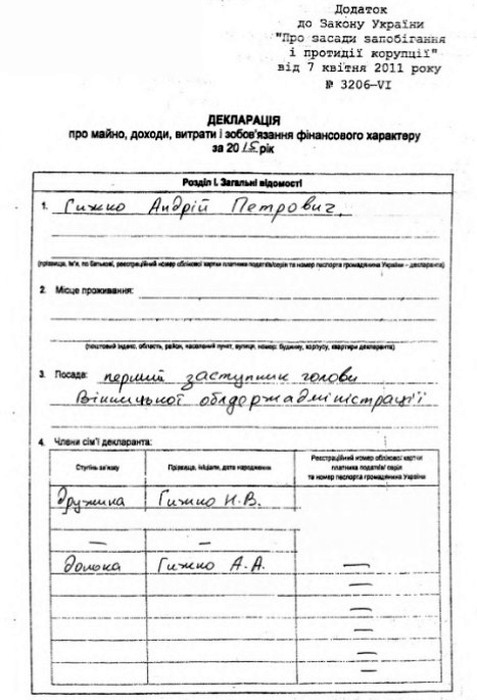 Додаток
до Закону України
"Про засади запобігання
і протидії корупції"
від 7 квітня 2011 року
№ 3206-VI
ДЕКЛАРАЦІЯ
про майно, доходи, витрати і зобов'язання фінансового характеру
за 2015 рік
Розділ I. Загальні відомості
1. Гижко Андрій Петрович,
(прізвище, ім'я, по батькові, реєстраційний номер облікової картки платника податків/серія та номер паспорта громадянина України – декларанта)
2. Місце проживання:
(поштовий індекс, область, район, населений пункт, вулиця, номер: будинку, корпусу, квартири декларанта)
3. Посада: перший заступник голови
Вінницької облдержадміністрації
4. Члени сім'ї декларанта:
Ступінь зв'язку
Прізвище, ініціали, дата народження
Реєстраційний номер облікової картки
платника податків/ серія
та номер паспорта громадянина України
дружина Гижко Н.В.
— —
донька Гижко А.А. —
—
—
—
—
—